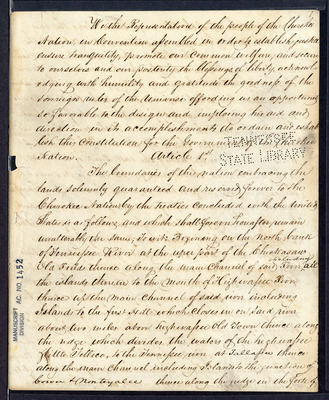 We the Representatives of the people of the Cherokee
Nation in Convention assembled in order to establish justice
ensure tranquility, promote our Common Welfare, and secure
to ourselves and our posterity the blessings of liberty, acknowl
edging with humility and gratitude the goodness of the
sovereign ruler of the Universe affording us an opportunity
so favorable to the design and imploring his aid and
direction in its accomplishment do ordain and estab
lish this Constitution for the Government of the Cherokee
Nation.
Article 1st
TENNESSEE
STATE LIBRARY
The boundaries of this nation embracing the
lands solemnly guaranteed and reserved forever to the
Cherokee Nation by the treaties concluded with the United
States is as follows, and which shall forever hereafter remain
unalterably the same; To wit Beginning on the North bank
of Tennessee River at the upper part of the Chickasaw
Old Fields thence along the main Channel of said River including all
the islands therein to the Mouth of Highwassee River
thence up the main Channel of said river including
Islands to the first hill which closes in on said river
about two miles above highwassee Old Town thence along
the ridge which divides the waters of the highwassee
Little Tellico, to the Tennessee river at Tallassee thence
along the main Channel including Islands to the junction of
Cowee & Nanteyalee thence along the ridge in the fork of
MANUSCRIPT
DIVISION
AC. NO. 1452